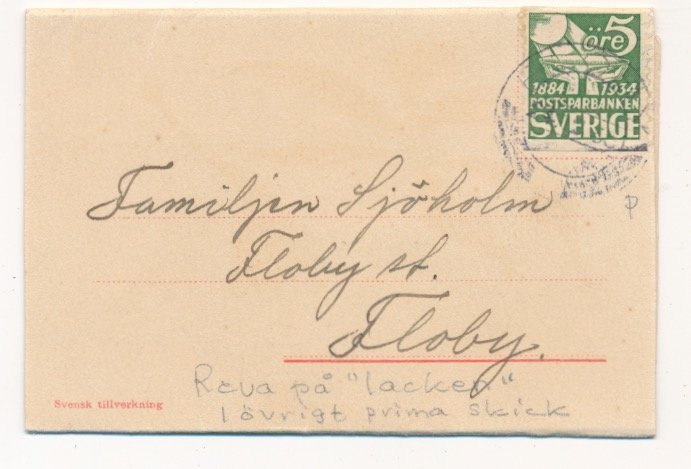 öre 5
1884 1934
POSTSPARBANKEN
SVERIGE
Familjen Sjöholm
Floby st.
Floby.
Reva på "lacken"
I övrigt prima skick
Svensk tillverkning
p